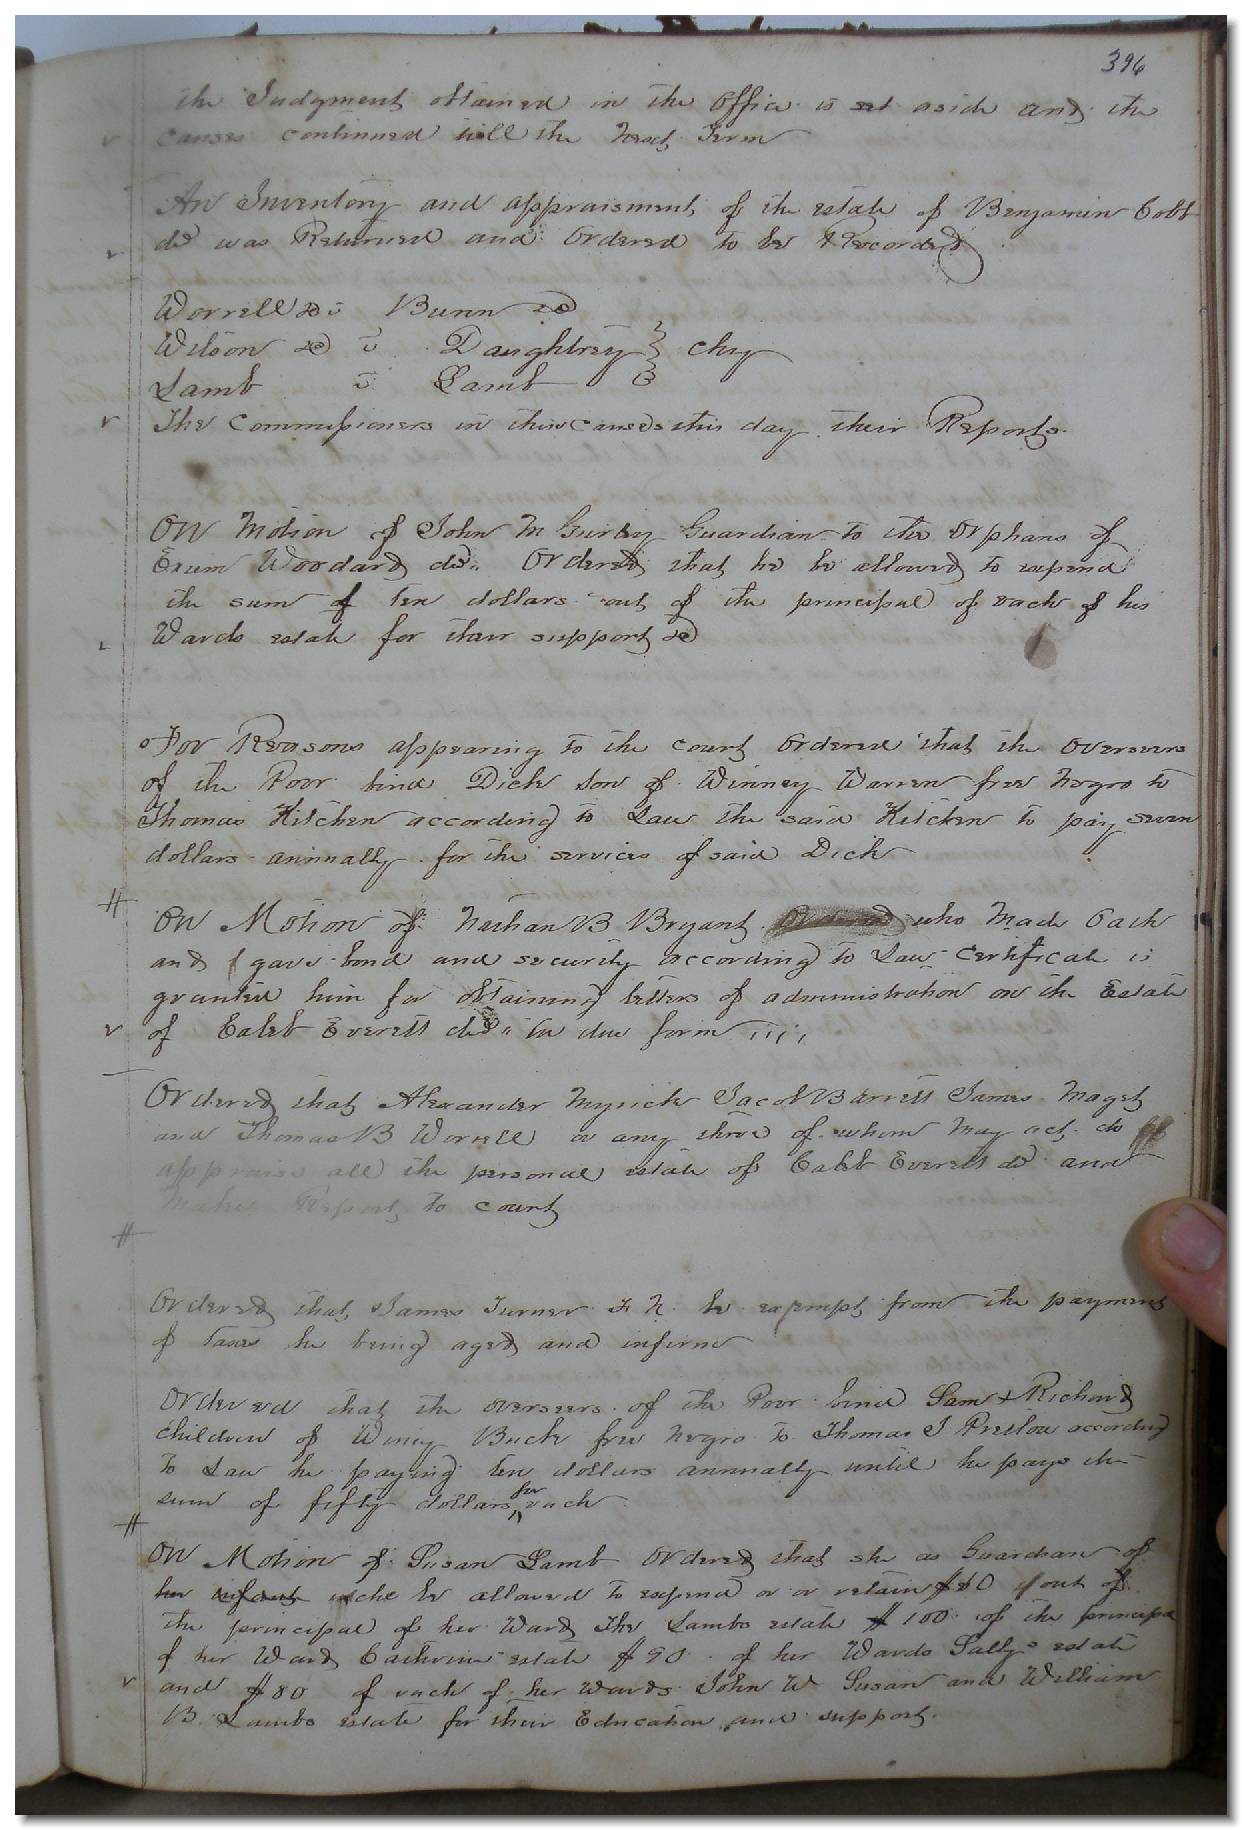 396
the Judgment obtained in the office is set aside and the
causes continued till the next Term
An Inventory and appraisment of the estate of Benjamin Cobb
decd was Returned and Ordered to be Recorded
Worrell &c vs Bunn &c
Wilson &c vs Daughtrey } chy
Lamb vs Lamb
The Commissioners in this causes this day their Reports
On Motion of John M Gurley Guardian to the orphans of
Exum Woodard decd Ordered that he be allowed to expend
the sum of ten dollars out of the principal of each of his
Wards estate for their support &c
For Reasons appearing to the court ordered that the overseers
of the Poor bind Dick son of Winney Warren free negro to
Thomas Kitchen according to Law the said Kitchen to pay seven
dollars annually for the services of said Dick
On Motion of Nathan B Bryant Ordered who made Oath
and gave bond and security according to Law certificate is
granted him for obtaining letters of administration on the Estate
of Caleb Everett decd in due form
Ordered that Alexander Myrick Jacob Barrett James Maget
and Thomas B Worrell or any three of whom may act do
appraise all the personal estate of Caleb Everett decd and
make Report to court
Ordered that James Turner F N. be exempt from the payment
of taxes he being aged and infirm
Ordered that the overseers of the Poor bind Sam & Richard
children of Winny Buck free negro to Thomas J Pretlow according
to Law he paying ten dollars annually until he pays the
sum of fifty dollars for each
On Motion of Susan Lamb Ordered that she as Guardian of
her infant be allowed to expend or or retain $80 out of
the principal of her Ward Lambs estate $100 of the principal
of her Ward Cathrine estate $90 of her Wards Sally's estate
and $80 of each of her wards John W Susan and William
B. Lambs estate for their Education and support.